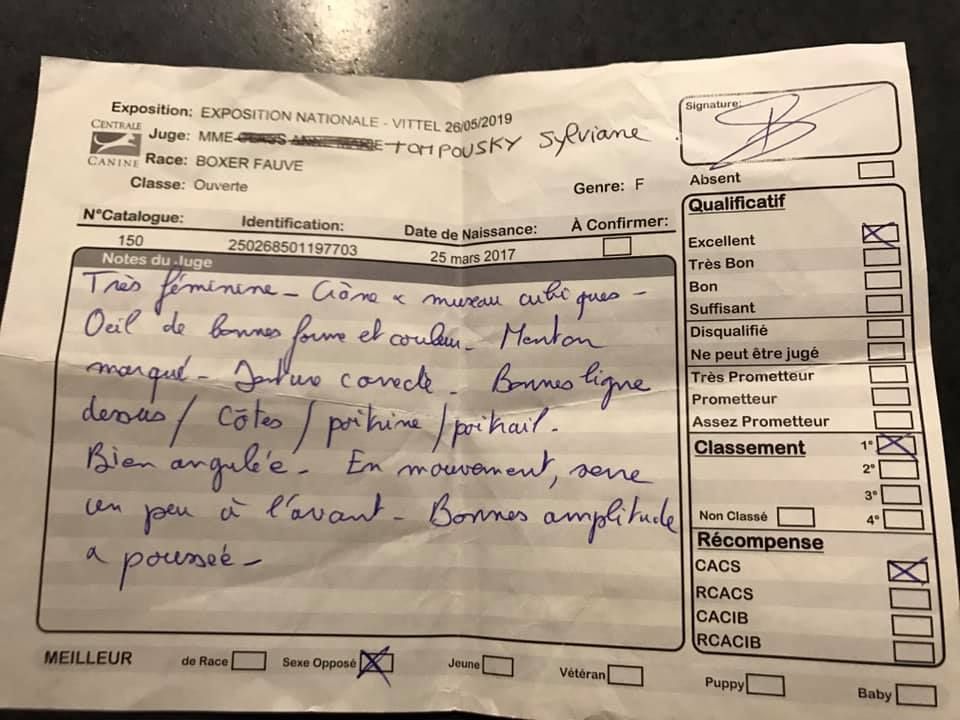 Exposition: EXPOSITION NATIONALE - VITTEL 26/05/2019
CENTRALE CANINE
Juge: MME CLASS ANNE MARIE TOMPOUSKY Sylviane
Race: BOXER FAUVE
Classe: Ouverte
Genre: F
Signature:
Absent
N°Catalogue: Identification: Date de Naissance: À Confirmer:
150 250268501197703 25 mars 2017
Notes du Juge
Très féminine - Crâne & museau cubiques -
Oeil de bonnes forme et couleur - Menton
marqué - Denture correcte - Bonnes ligne
dessus / côtes / poitrine / poitrail.
Bien angulée - En mouvement, serre
un peu à l'avant - Bonnes amplitude
& poussée -
Qualificatif
Excellent
Très Bon
Bon
Suffisant
Disqualifié
Ne peut être jugé
Très Prometteur
Prometteur
Assez Prometteur
Classement 1°
2°
3°
Non Classé 4°
Récompense
CACS
RCACS
CACIB
RCACIB
MEILLEUR de Race Sexe Opposé Jeune Vétéran Puppy Baby